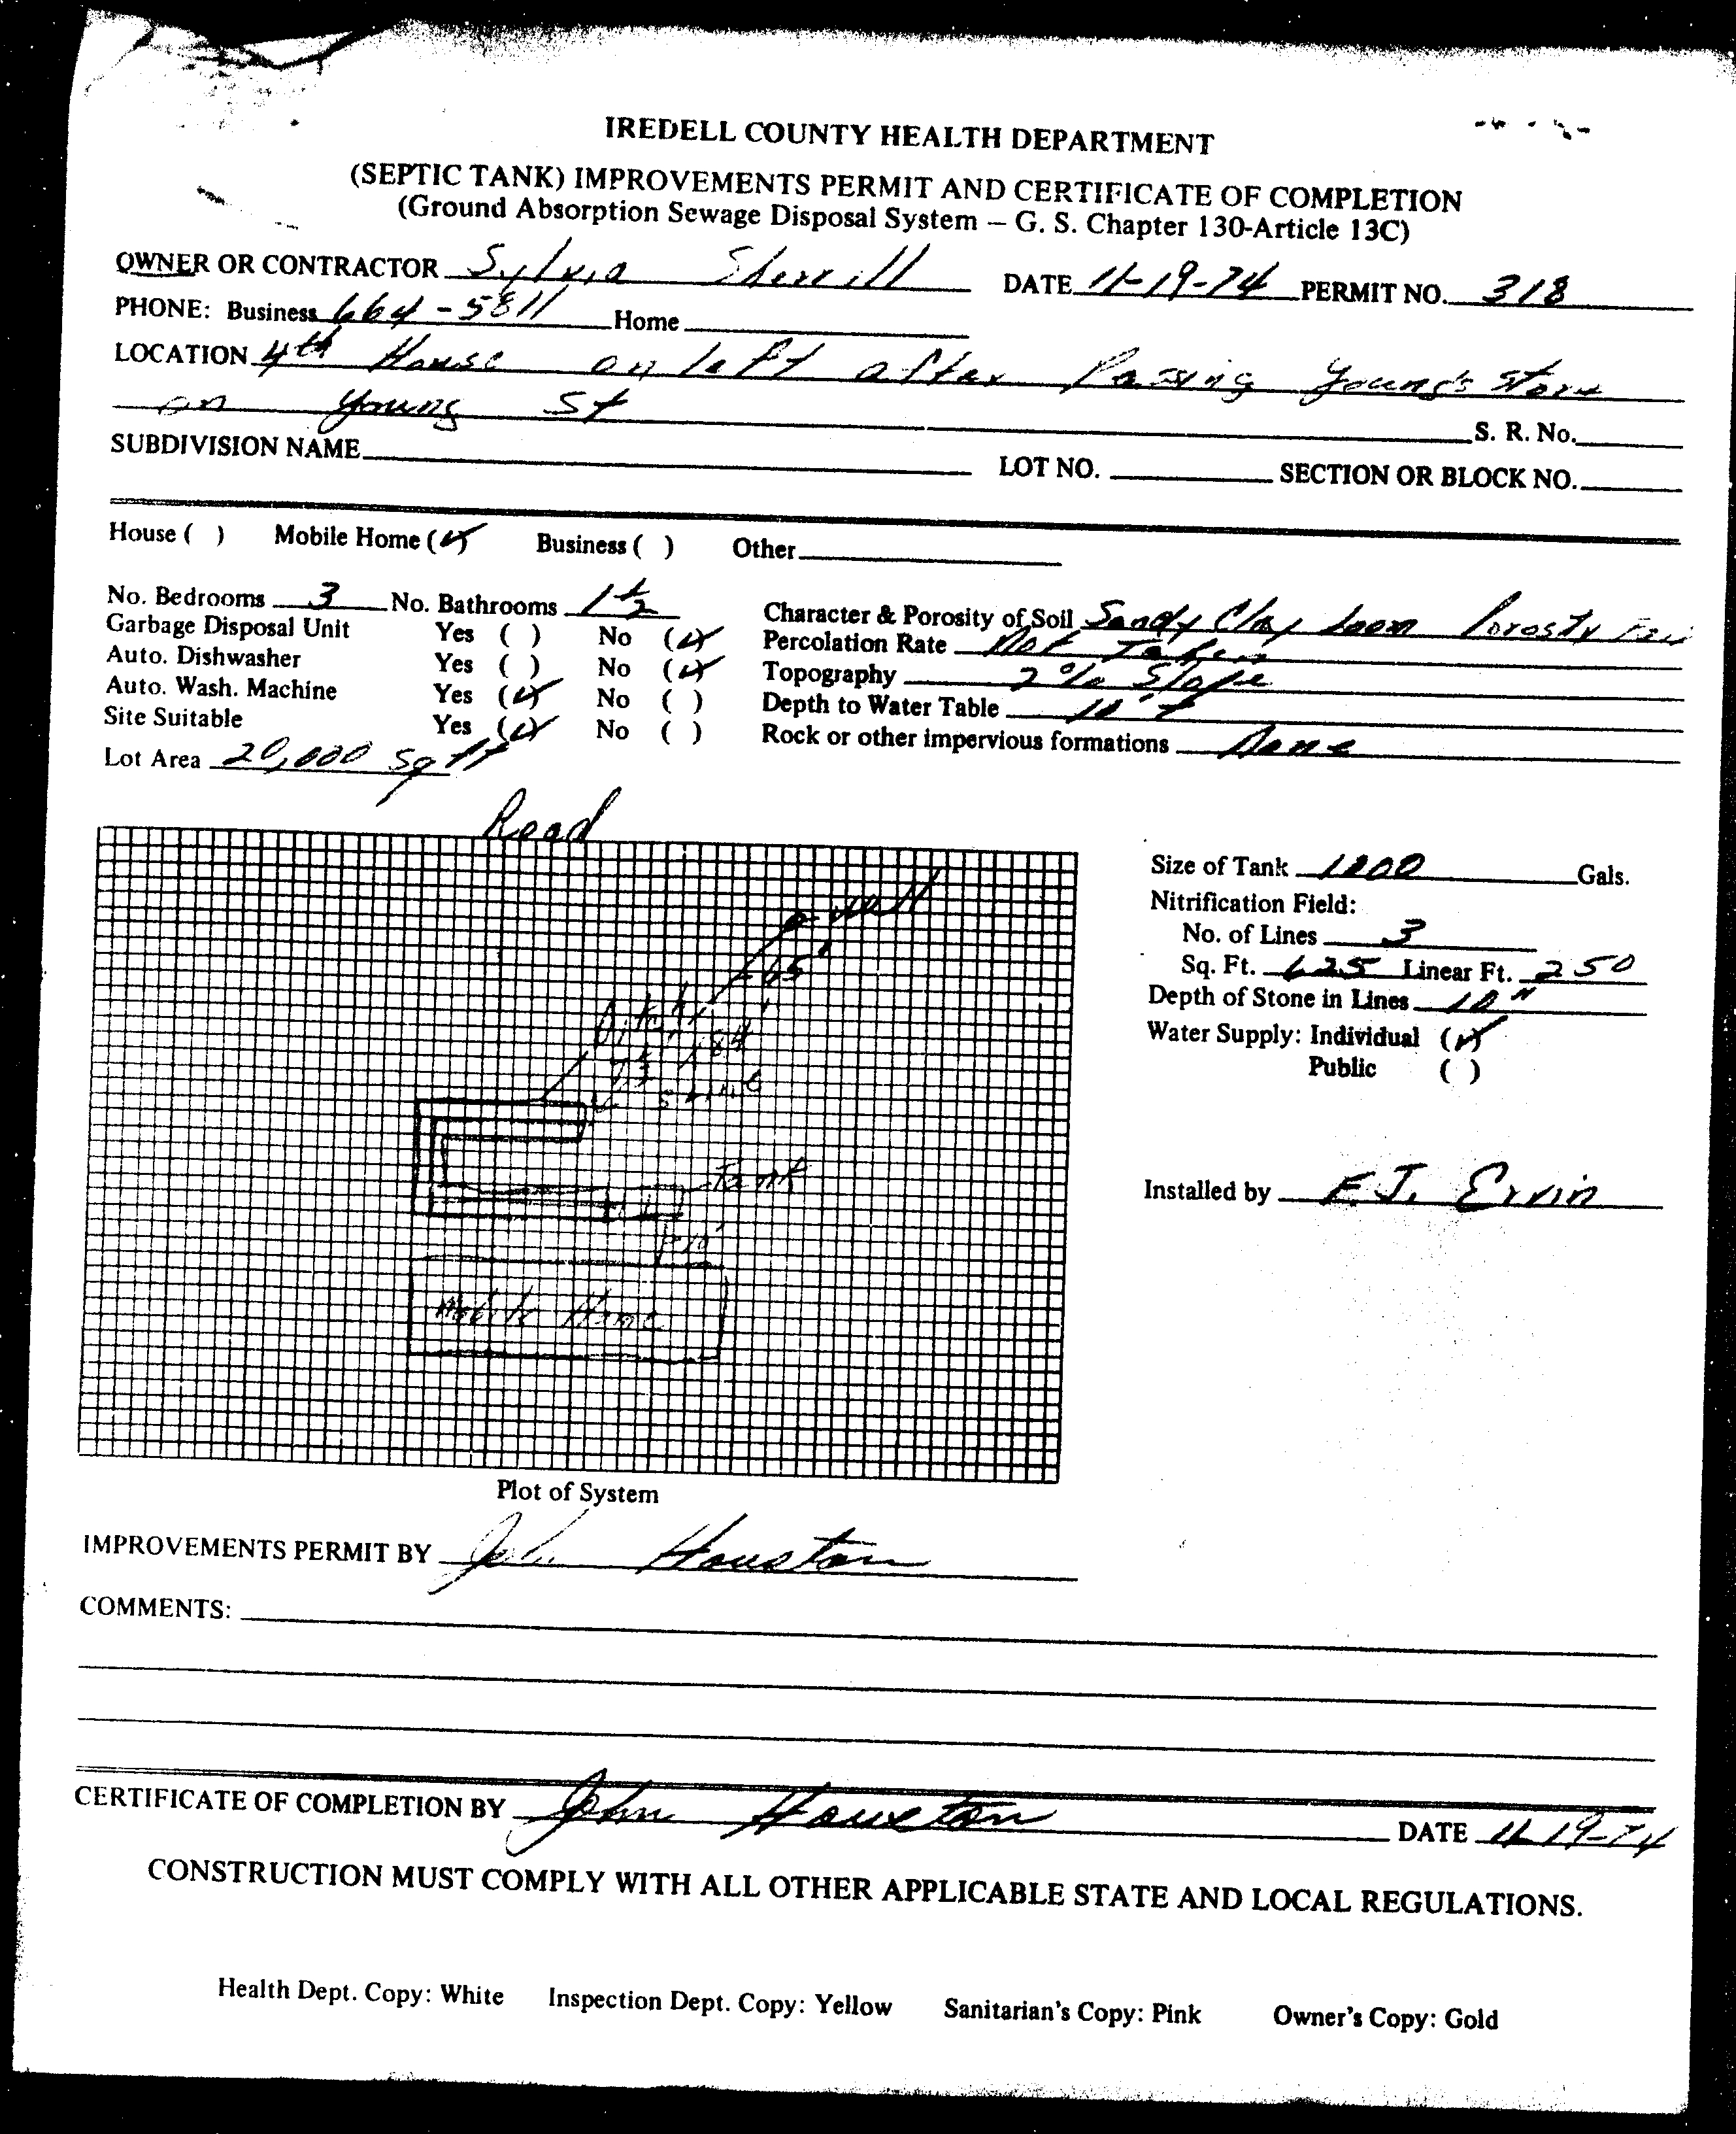 IREDELL COUNTY HEALTH DEPARTMENT
(SEPTIC TANK) IMPROVEMENTS PERMIT AND CERTIFICATE OF COMPLETION
(Ground Absorption Sewage Disposal System – G. S. Chapter 130-Article 13C)
OWNER OR CONTRACTOR Sylvia Sherrill DATE 11-19-74 PERMIT NO. 318
PHONE: Business 664-5811 Home
LOCATION 4th House on left after Passing Young's Store
on Young St S. R. No.
SUBDIVISION NAME LOT NO. SECTION OR BLOCK NO.
House ( ) Mobile Home (✓) Business ( ) Other
No. Bedrooms 3 No. Bathrooms 1 1/2
Garbage Disposal Unit Yes ( ) No (✓)
Auto. Dishwasher Yes ( ) No (✓)
Auto. Wash. Machine Yes (✓) No ( )
Site Suitable Yes (✓) No ( )
Lot Area 20,000 sq ft
Character & Porosity of Soil Sandy Clay Loam Porosty Fair
Percolation Rate Not Taken
Topography 2% Slope
Depth to Water Table 10'+
Rock or other impervious formations None
Road
well
65'
Tank
10'
Mobile Home
Plot of System
Size of Tank 1000 Gals.
Nitrification Field:
No. of Lines 3
Sq. Ft. 625 Linear Ft. 250
Depth of Stone in Lines 10"
Water Supply: Individual (✓)
Public ( )
Installed by F.J. Ervin
IMPROVEMENTS PERMIT BY John Houston
COMMENTS:
CERTIFICATE OF COMPLETION BY John Houston DATE 11-19-74
CONSTRUCTION MUST COMPLY WITH ALL OTHER APPLICABLE STATE AND LOCAL REGULATIONS.
Health Dept. Copy: White Inspection Dept. Copy: Yellow Sanitarian's Copy: Pink Owner's Copy: Gold